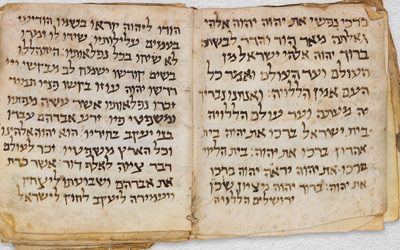 ברכי נפשי את יהוה יהוה אלהי
גדלתה מאד הוד והדר לבשת
ברוך יהוה אלהי ישראל מן
העולם ועד העולם ואמר כל
העם אמן הללויה: ואנחנו נברך
יה מעתה ועד עולם הללויה
בית ישראל ברכו את יהוה בית
אהרון ברכו את יהוה: בית הלוי
ברכו את יהוה יראי יהוה ברכו
את יהוה: ברוך יהוה מציון שכן
ירושלים הללויה
הודו ליהוה קראו בשמו הודיעו
בעמים עלילותיו: שירו לו זמרו
לו שיחו בכל נפלאותיו: התהללו
בשם קודשו ישמח לב מבקשי יי
דרשו יהוה עוזו בקשו פניו תמיד
זכרו נפלאותיו אשר עשה מפתיו
ומשפטי פיו: זרע אברהם עבדו
בני יעקב בחיריו: הוא יהוה אלהינו
בכל הארץ משפטיו: זכרו לעולם
דבר ציוה לאלף דור: אשר כרת
את אברהם ושבועתו ליצחק
ויעמידה ליעקב לחוק לישראל